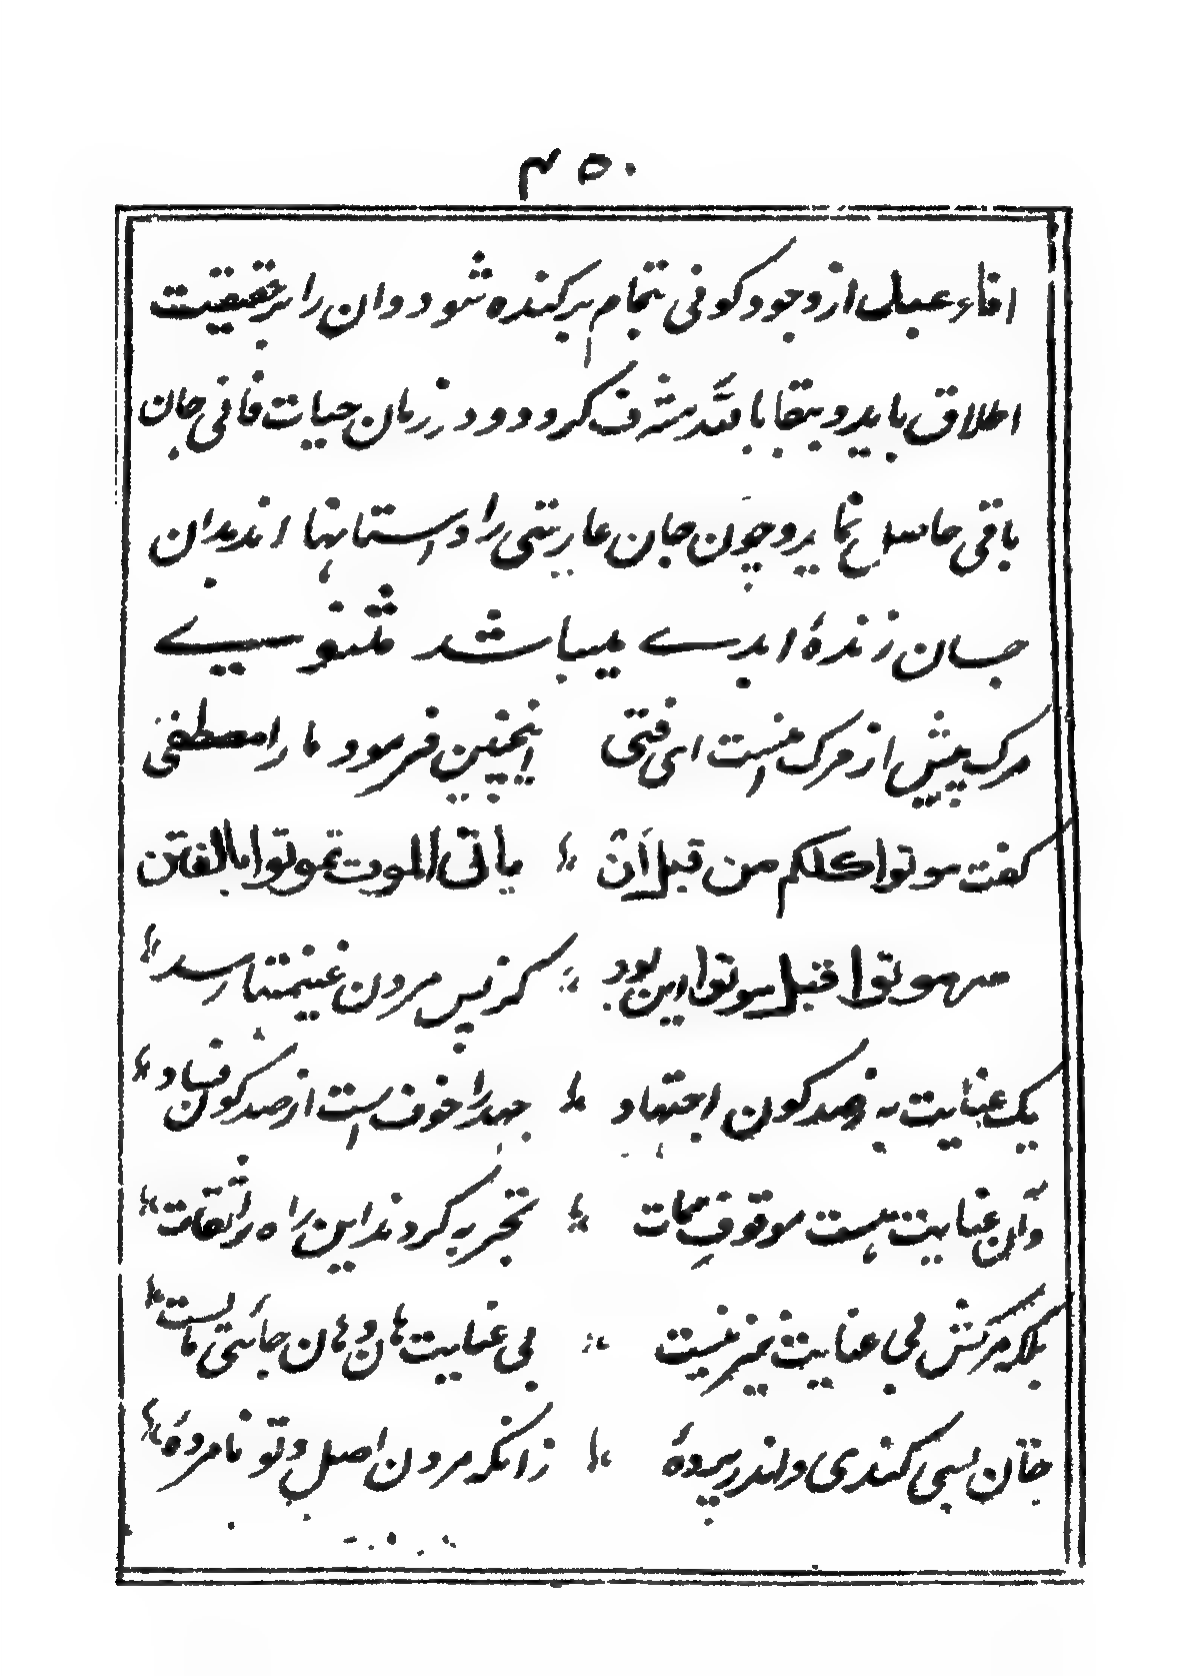 ۴۵۰
افاء عبل از وجود کونی بتمام برکنده شود و ان را بر حقیقیت
اطلاق باید و ببقا بالله مشرف کرود و در زمان حیات فانی جان
باقی حاسل نماید و چون جان عاریتی را واستانها اندبدان
جسان زندهٔ ابدے میباشد مثنوے
مرک پیش از مرک انیست ای فتی اینچنین فرمود ما را مصطفی
کفت موتوا کلکم من قبل ان یاتی الموت تموتوا بالفتن
سر موتوا قبل موتوا این بود کز پس مردن غنیمتها رسد
یک عنایت به ز صد کون اجتهاد جهد را خوف است از صد کون فساد
وان عنایت هست موقوف ممات تجربه کردند این راه را ثقات
بلکه مرکش بی عنایت نیز نیست بی عنایت هان و هان جائی مایست
جان بسی کندی و اندر پردهٔ زانکه مردن اصل و تو نامردهٔ